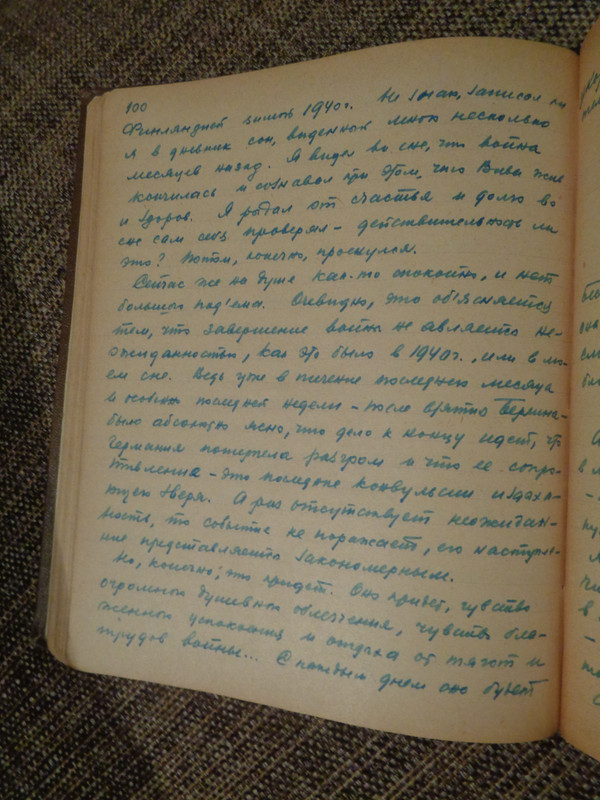 100
Финляндией зимой 1940г. Не знаю, записал ли
я в дневник сон, виденный мною несколько
месяцев назад. Я видел во сне, что война
кончилась и сознавал при этом, что
и здоров. Я рыдал от счастья и долго во
сне сам себя проверял – действительность ли
это? Потом, конечно, проснулся.
Сейчас же на душе как-то спокойно, и нет
большого под'ема. Очевидно, это об'ясняется
тем, что завершение войны не является не-
ожиданностью, как это было в 1940г., или в мо-
ем сне. Ведь уже в течение последнего месяца
и особенно последней недели – после взятия Берлина –
было абсолютно ясно, что дело к концу идет, что
Германия потерпела разгром и что ее сопро-
тивление – это последние конвульсии издыха-
ющего зверя. А раз отсутствует неожидан-
ность, то событие не поражает, его наступле-
ние представляется закономерным.
Но, конечно, это придет. Оно придет, чувство
огромного душевного облегчения, чувство бла-
женного успокоения и отдыха от тягот и
трудов войны... С каждым днем оно будет